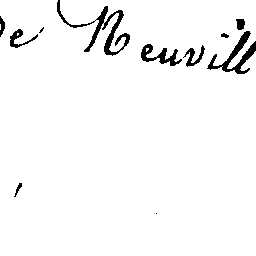 de Neuvill